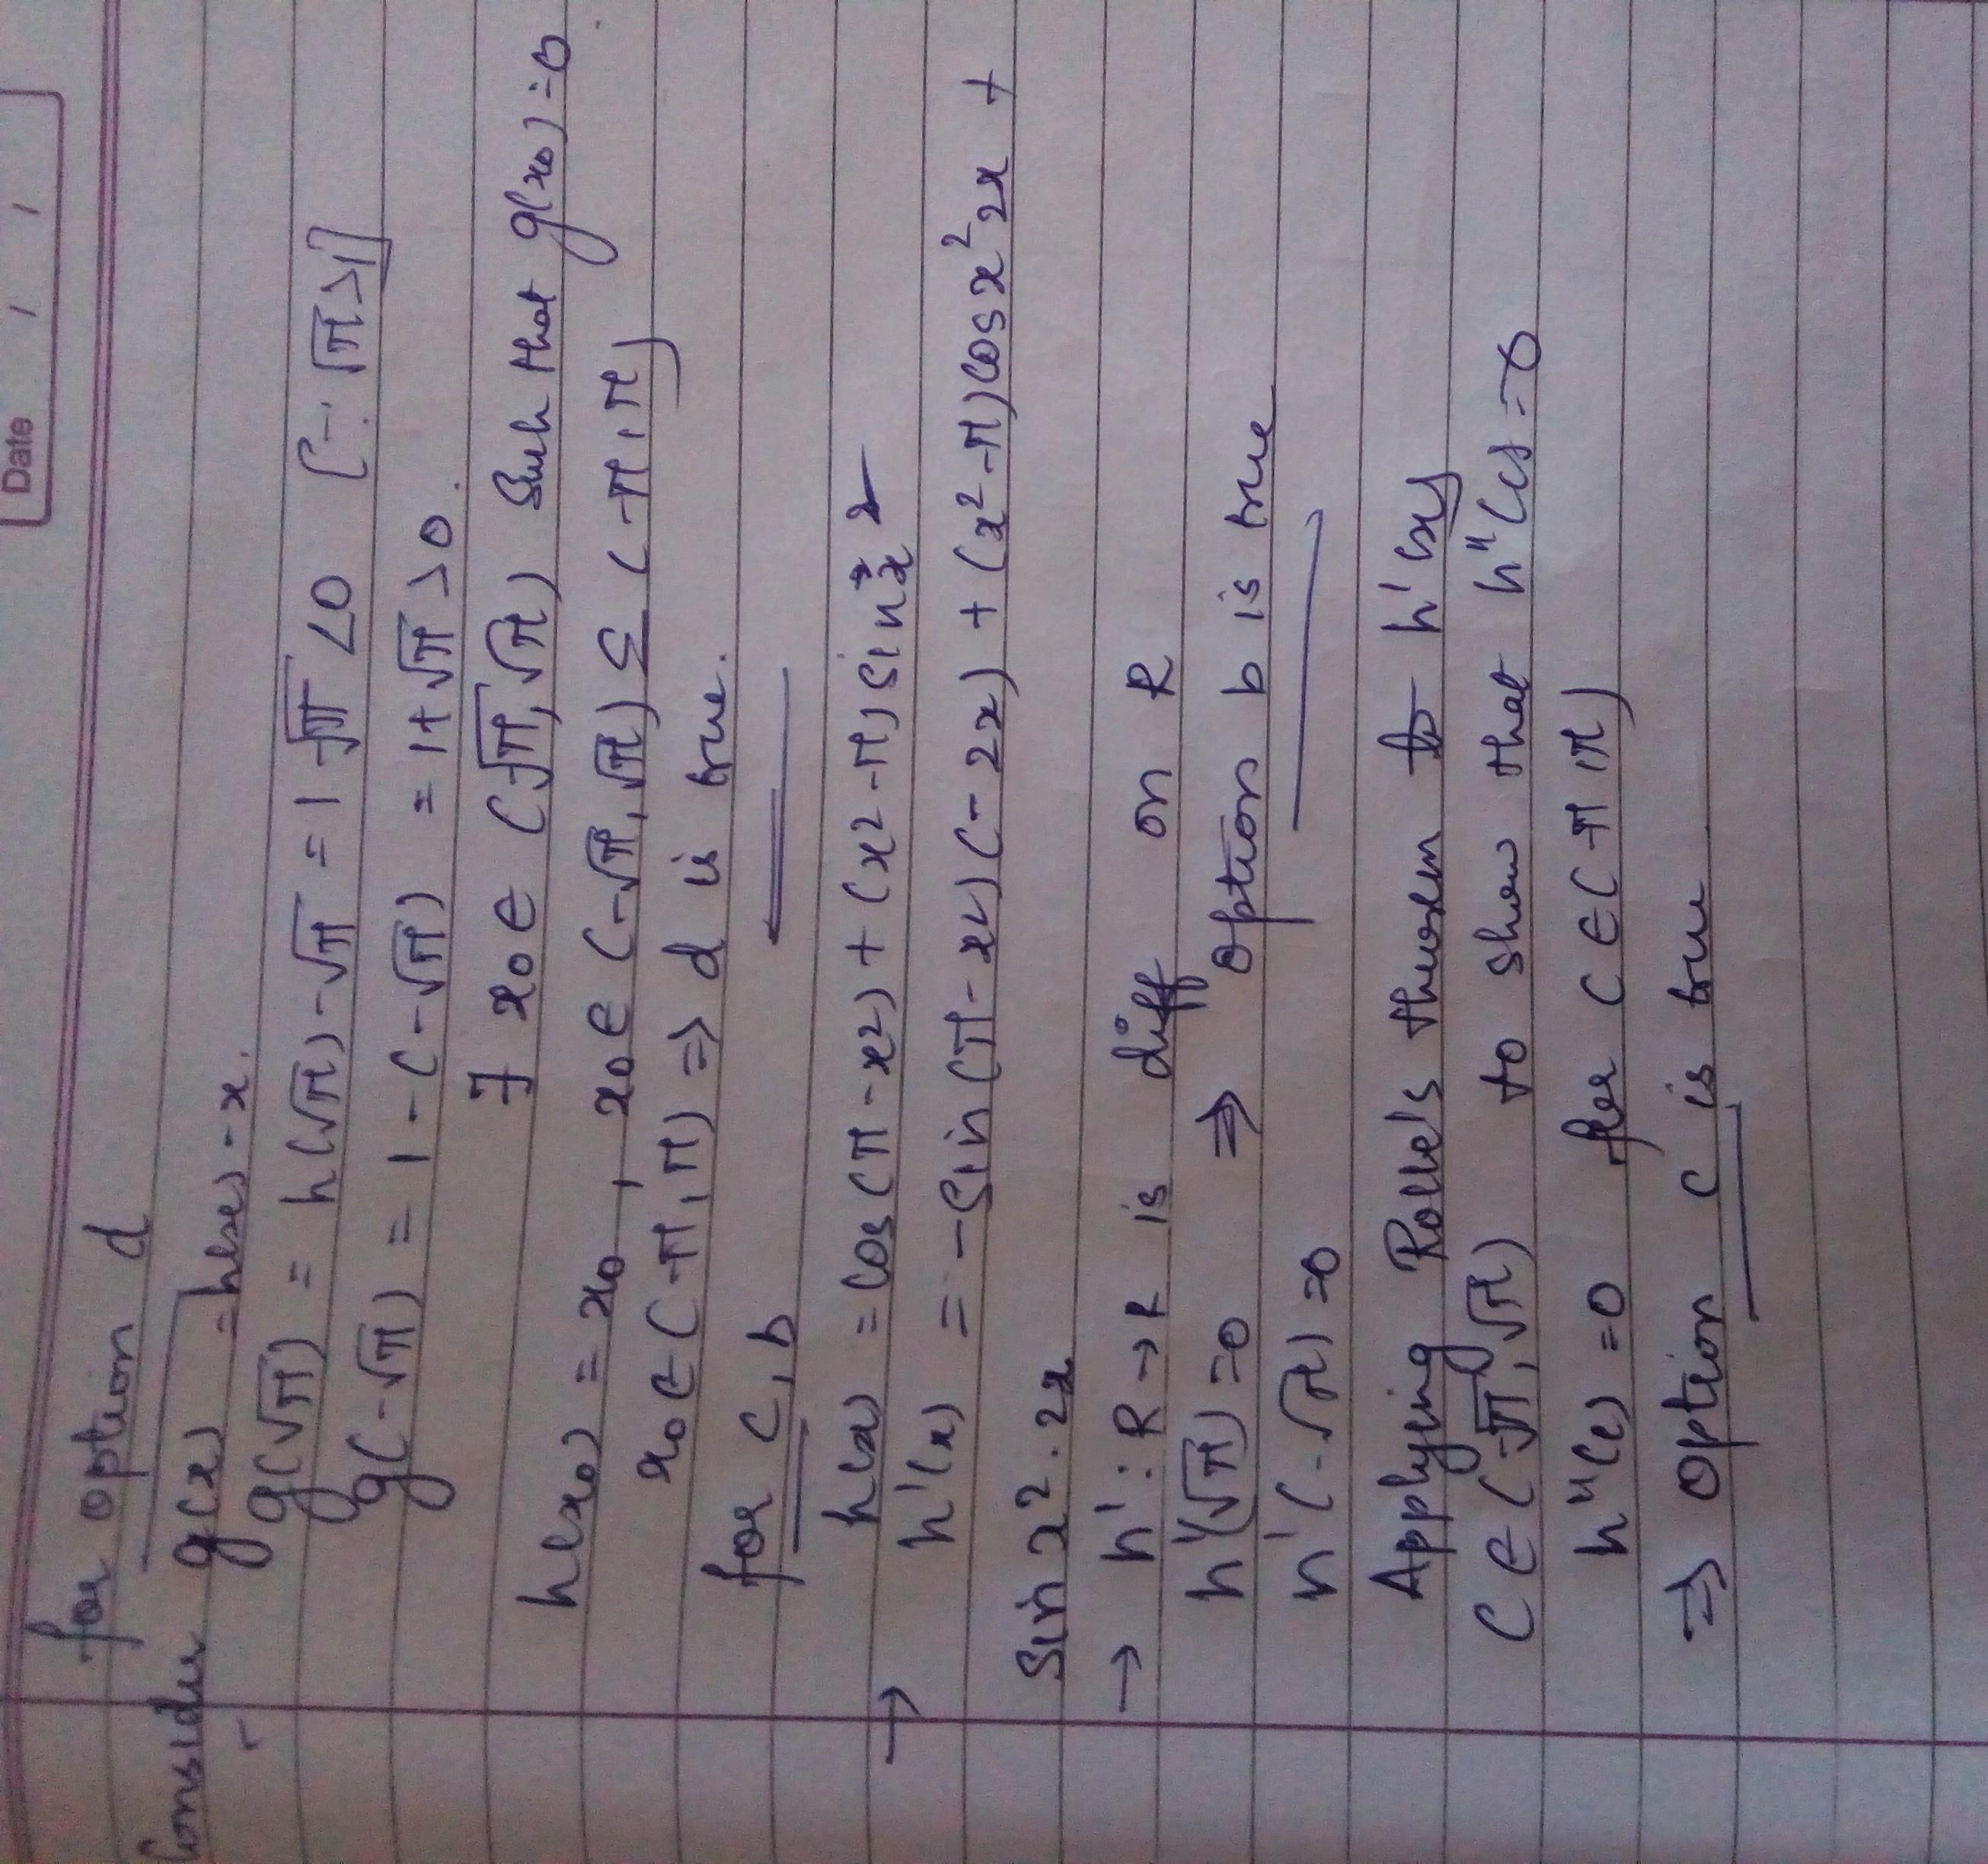 Date / /
for option d
Consider g(x) = h(x) - x.
g(√π) = h(√π) - √π = 1 - √π < 0 [∵ √π > 1]
g(-√π) = 1 - (-√π) = 1 + √π > 0.
∃ x₀ ∈ (-√π, √π) Such that g(x₀) = 0.
h(x₀) = x₀, x₀ ∈ (-√π, √π) ⊆ (-π, π)
x₀ ∈ (-π, π) ⇒ d is true.
for c, b
→ h(x) = cos(π - x²) + (x² - π) sin x²
h'(x) = - sin(π - x²)(-2x) + (x² - π) cos x² 2x +
Sin x² . 2x
→ h' : R → R is diff on R
h'(√π) = 0 ⇒ option b is true
h'(-√π) = 0
Applying Rolle's theorem to h'(x)
C ∈ (-√π, √π) to show that h"(c) = 0
h"(c) = 0 for C ∈ (-π, π)
⇒ option c is true